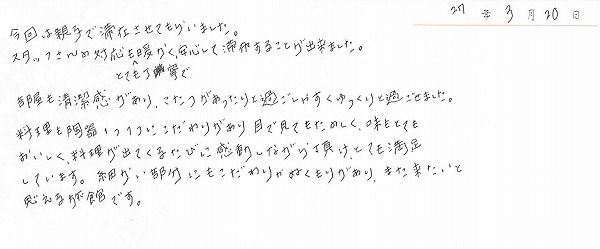 27 年 3 月 20 日
今回は親子で滞在させてもらいました。
スタッフさんの対応も暖かく、安心して滞在することが出来ました。
とても丁寧で
部屋も清潔感があり、こたつがあったりと過ごしやすくゆっくりと過ごせました。
料理も陶器1つ1つにこだわりがあり目で見てもたのしく、味もとても
おいしく、料理が出てくるたびに感動しながら頂け、とても満足
しています。細かい部分にもこだわりがぬくもりがあり、また来たいと
思える旅館です。